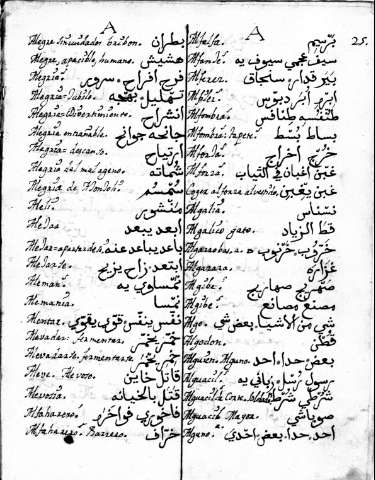 A
Alegre sin cuidados bribon. بطران
Alegre, apacible, humano. هشيش
Alegria. فرح افراح. سرور
Alegria = Jubilo. تهليل. بهجه
Alegria = Divertimiento. انشراح
Alegria entrañable. جانحه جوانح
Alegria = descanso. ارتياح
Alegria del mal ageno. شماته
سمسم
Aleli. منثور
Alexar ابعد يبعد
باعد يباعد عنه
Alexarse. ابتعد. زاح يزيح
Aleman. نمساوي يه
Alemania. نمسا
Alentar. نفس ينفس قوي يقوي
خمر يخمر
Alevadarse, fermentarse خمر يخمر
Aleve. Alevoso. قاتل خاين
Alevosia. قتل بالخيانه
Alfaharero. فاخوري فواخره
Alfaharero. Barrero. خراف
A
25.
Alfalfa. برسيم
Alfange. سيف عجمي سيوف يه
Alferez. بيرقدار. سنجاق
Alfiler. ابره. ابر دبوس
Alfombra. طنفسه طنافس
Alfombra. Tapete. بساط بسط
Alforja. خرج اخراج
Alforza. غبن اغبان في الثياب
Coger alforza al vestido. غبن يغبن
Algalia. نسناس
Algalico gato. قط الزباد
Algarroba, s. خروب. خرنوب ه
Algazara. غزاره
Algibe. صهريج صهاريج
Algibe. مصنع مصانع
Algo. شي من الاشيا. بعض شي
Algodon. قطن
Alguien. Alguno. بعض. حدا. احد
Alguacil. رسول رسل. زباني يه
شرطي شرط
Alguacil Mayor. صوباشي
Alguno. احد. حدا. بعض. احدي